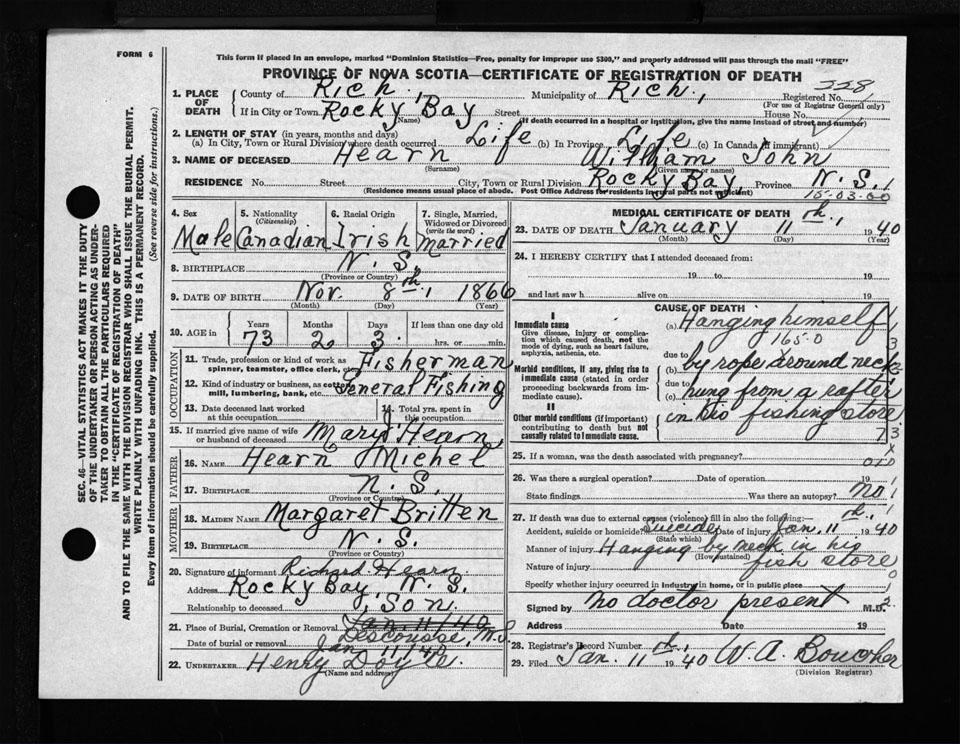 FORM 6
This form if placed in an envelope, marked "Dominion Statistics—Free, penalty for improper use $300," and properly addressed will pass through the mail "FREE"
PROVINCE OF NOVA SCOTIA—CERTIFICATE OF REGISTRATION OF DEATH
328
1. PLACE OF DEATH
County of Rich. Municipality of Rich., Registered No.
(For use of Registrar General only)
If in City or Town Rocky Bay Street House No.
(Name) (If death occurred in a hospital or institution, give the name instead of street and number)
2. LENGTH OF STAY (in years, months and days)
(a) In City, Town or Rural Division where death occurred Life (b) In Province Life (c) In Canada (if immigrant)
3. NAME OF DECEASED Hearn William John
(Surname) (Given name or names)
RESIDENCE No. Street City, Town or Rural Division Rocky Bay, Province N.S.
(Residence means usual place of abode. Post Office Address for residents in rural parts not sufficient)
15-03-00
4. Sex Male
5. Nationality (Citizenship) Canadian
6. Racial Origin Irish
7. Single, Married, Widowed or Divorced (write the word) married
8. BIRTHPLACE N.S.
(Province or Country)
9. DATE OF BIRTH Nov. 8th, 1866
(Month) (Day) (Year)
10. AGE in Years 73 Months 2 Days 3 If less than one day old hrs. or min.
OCCUPATION
11. Trade, profession or kind of work as spinner, teamster, office clerk, etc. Fisherman
12. Kind of industry or business, as cotton mill, lumbering, bank, etc. General Fishing
13. Date deceased last worked at this occupation
14. Total yrs. spent in this occupation
15. If married give name of wife or husband of deceased Mary Hearn
FATHER
16. NAME Hearn Michel
17. BIRTHPLACE N.S.
(Province or Country)
MOTHER
18. MAIDEN NAME Margaret Britten
19. BIRTHPLACE N.S.
(Province or Country)
20. Signature of informant Richard Hearn
Address Rocky Bay, N.S.
Relationship to deceased Son.
21. Place of Burial, Cremation or Removal Jan. 11/40 Descousse, N.S.
Date of burial or removal Jan 11/40
22. UNDERTAKER Henry Doyle
(Name and address)
MEDICAL CERTIFICATE OF DEATH
23. DATE OF DEATH January 11th, 1940
(Month) (Day) (Year)
24. I HEREBY CERTIFY that I attended deceased from:
19 to 19
and last saw h alive on 19
CAUSE OF DEATH
I
Immediate cause
Give disease, injury or complication which caused death, not the mode of dying, such as heart failure, asphyxia, asthenia, etc.
(a) Hanging himself
165-0
due to
Morbid conditions, if any, giving rise to immediate cause (stated in order proceeding backwards from immediate cause).
(b) by rope around neck
due to
(c) hung from a rafter
II
Other morbid conditions (if important) contributing to death but not causally related to immediate cause.
in his fishing store
73
25. If a woman, was the death associated with pregnancy?
26. Was there a surgical operation? Date of operation 19
State findings Was there an autopsy? no
27. If death was due to external causes (violence) fill in also the following:—
Accident, suicide or homicide? Suicide Date of injury Jan. 11th, 1940
(State which)
Manner of injury Hanging by neck in his
(How sustained)
Nature of injury fish store
Specify whether injury occurred in industry in home, or in public place
Signed by no doctor present M.D.
Address Date 19
28. Registrar's Record Number
29. Filed Jan. 11th, 1940 W.A. Boucher
(Division Registrar)
SEC. 46—VITAL STATISTICS ACT MAKES IT THE DUTY
OF THE UNDERTAKER OR PERSON ACTING AS UNDER-
TAKER TO OBTAIN ALL THE PARTICULARS REQUIRED
IN THE "CERTIFICATE OF REGISTRATION OF DEATH"
AND TO FILE THE SAME WITH THE DIVISION REGISTRAR WHO SHALL ISSUE THE BURIAL PERMIT.
WRITE PLAINLY WITH UNFADING INK. THIS IS A PERMANENT RECORD.
Every item of information should be carefully supplied. (See reverse side for instructions.)